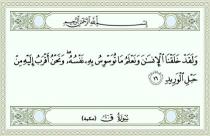 بِسْمِ اللَّهِ الرَّحْمَٰنِ الرَّحِيمِ
وَلَقَدْ خَلَقْنَا ٱلْإِنسَٰنَ وَنَعْلَمُ مَا تُوَسْوِسُ بِهِۦ نَفْسُهُۥ ۖ وَنَحْنُ أَقْرَبُ إِلَيْهِ مِنْ
حَبْلِ ٱلْوَرِيدِ ١٦
سُورَةُ قٓ (مكية)